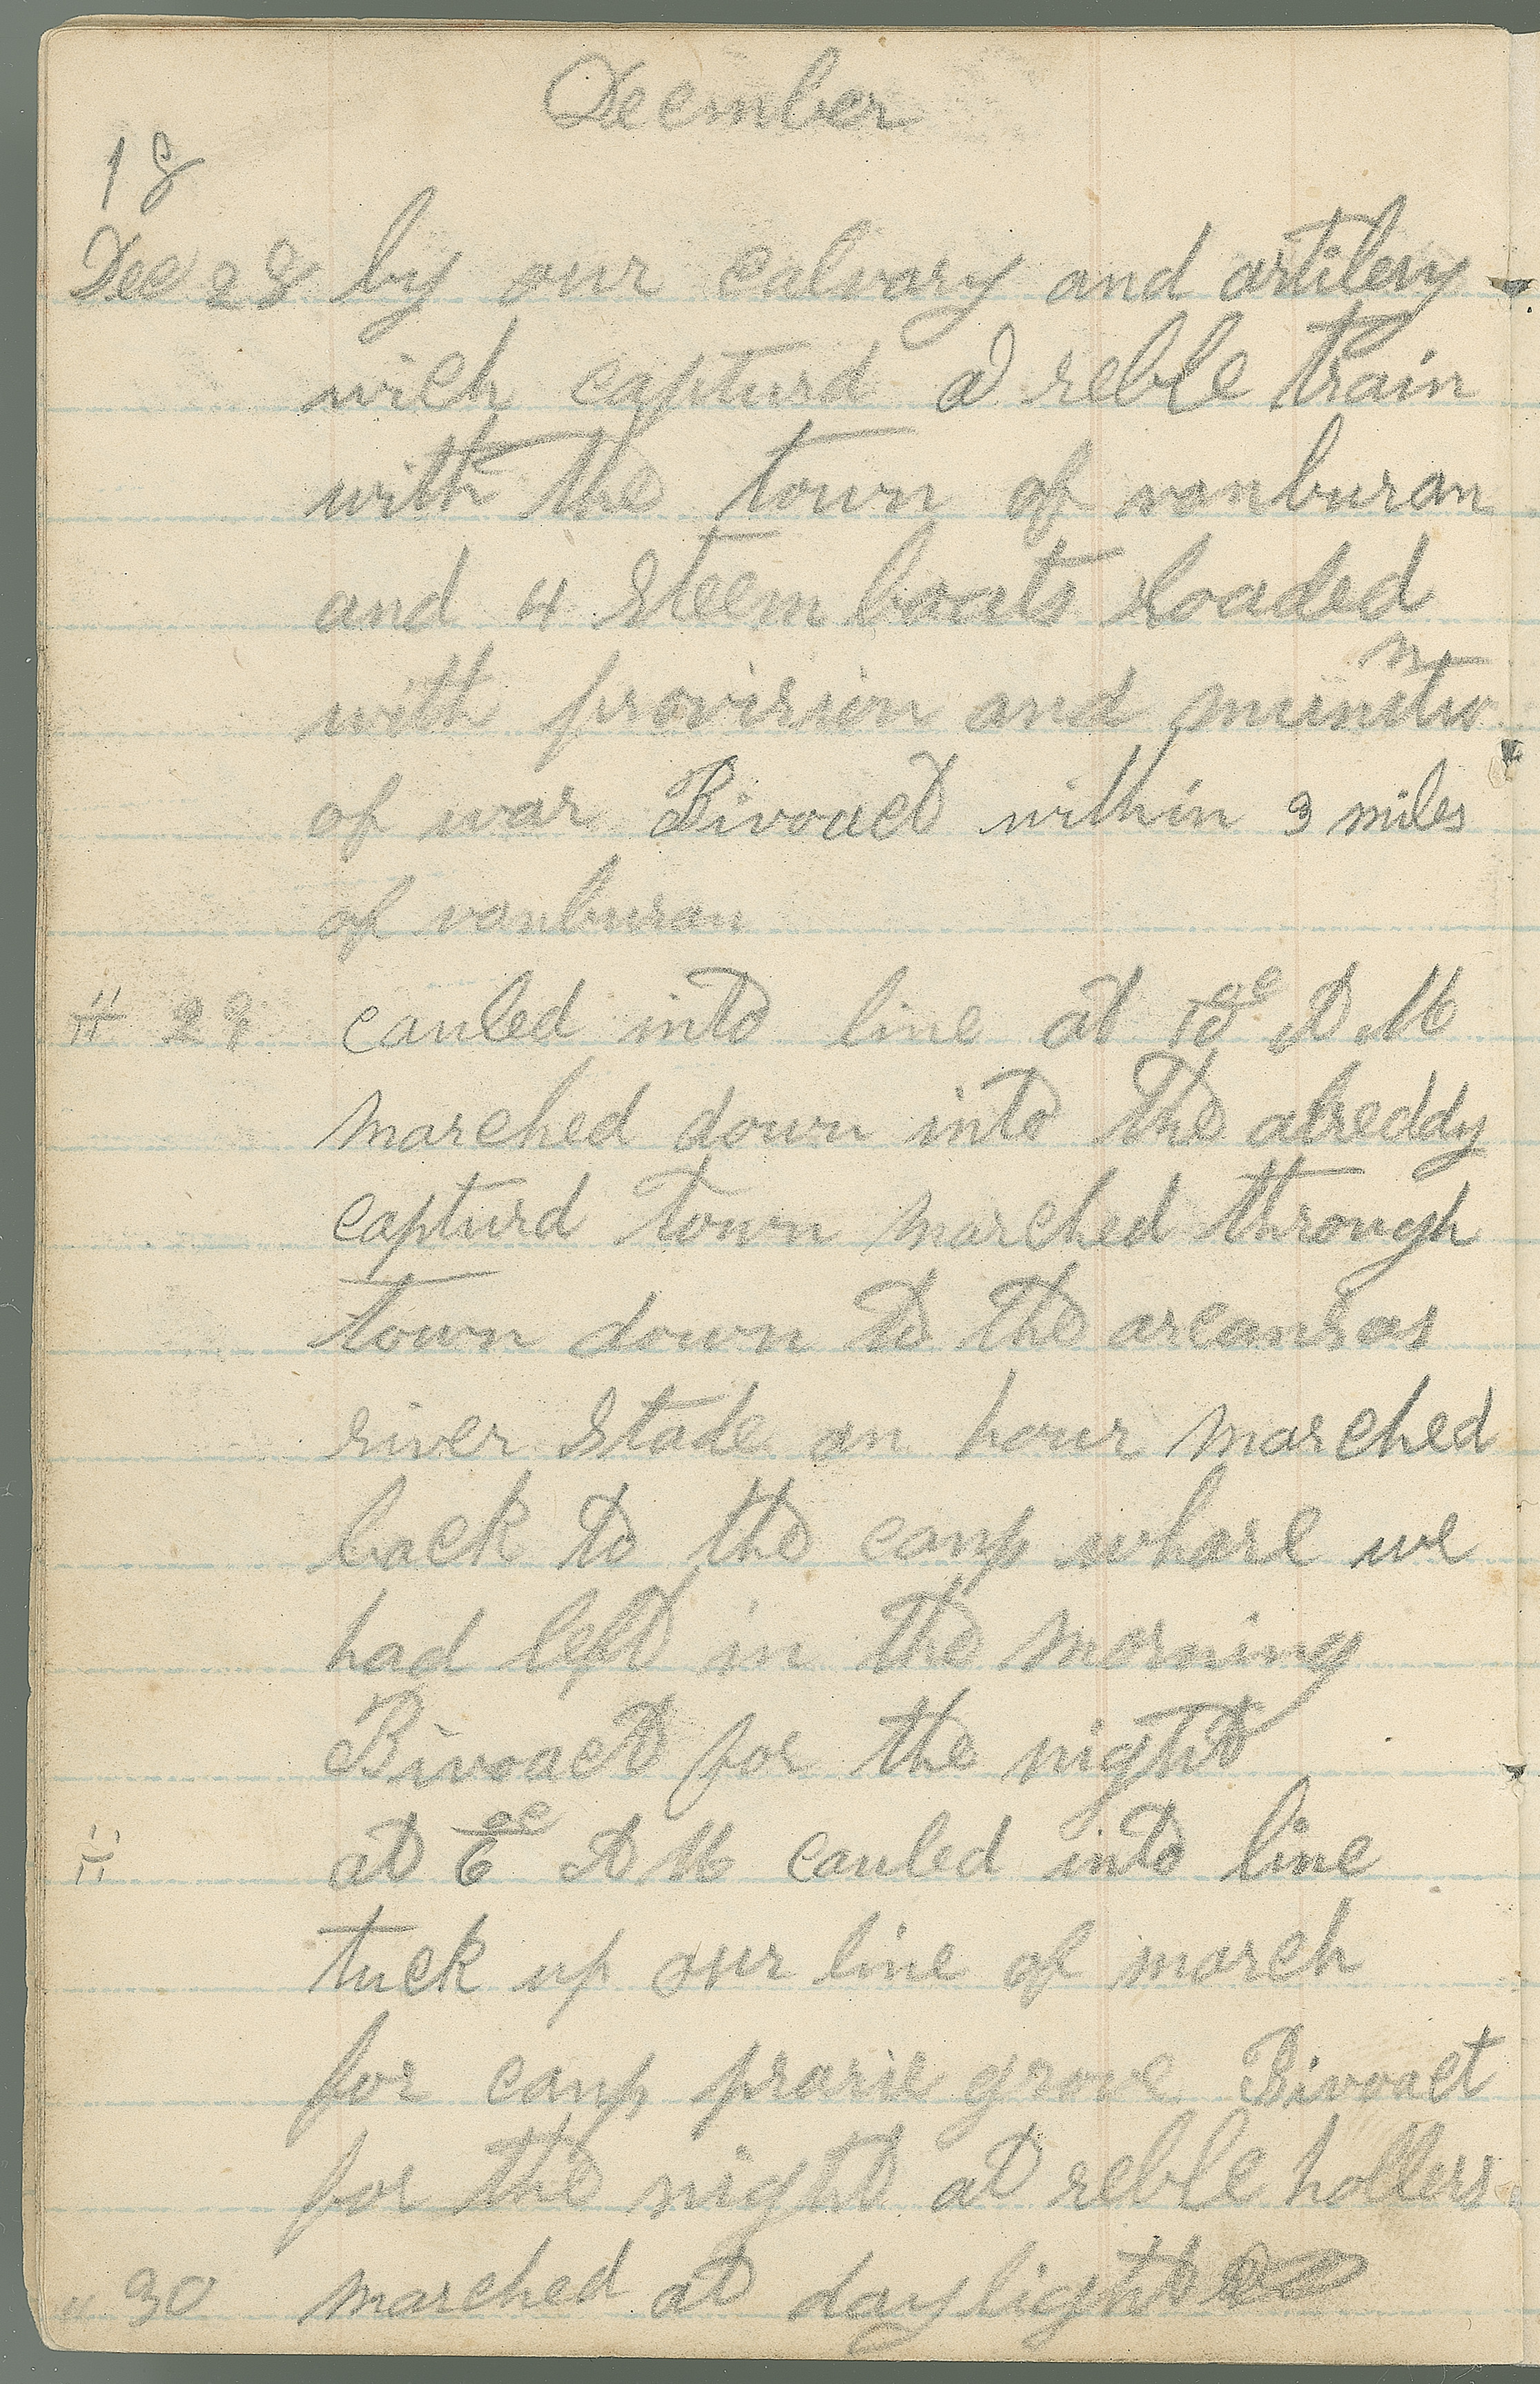 December
18
Dec 28 by our calvary and artilery
wich capturd a reble train
with the town of vanburan
and 4 steem boats loaded
with provision and munitio
n
of war Bivoact within 3 miles
of vanburan
" 29 cauled into line at 10 oc A M
marched down into the alreddy
capturd town marched through
town down to the arcansas
river stade an hour marched
back to the camp whare we
had left in the morning
Bivoact for the night
" at 6 oc A M cauled into line
tuck up our line of march
for camp prarie grove Bivoact
for the night at reble hollers
" 30 marched at daylight